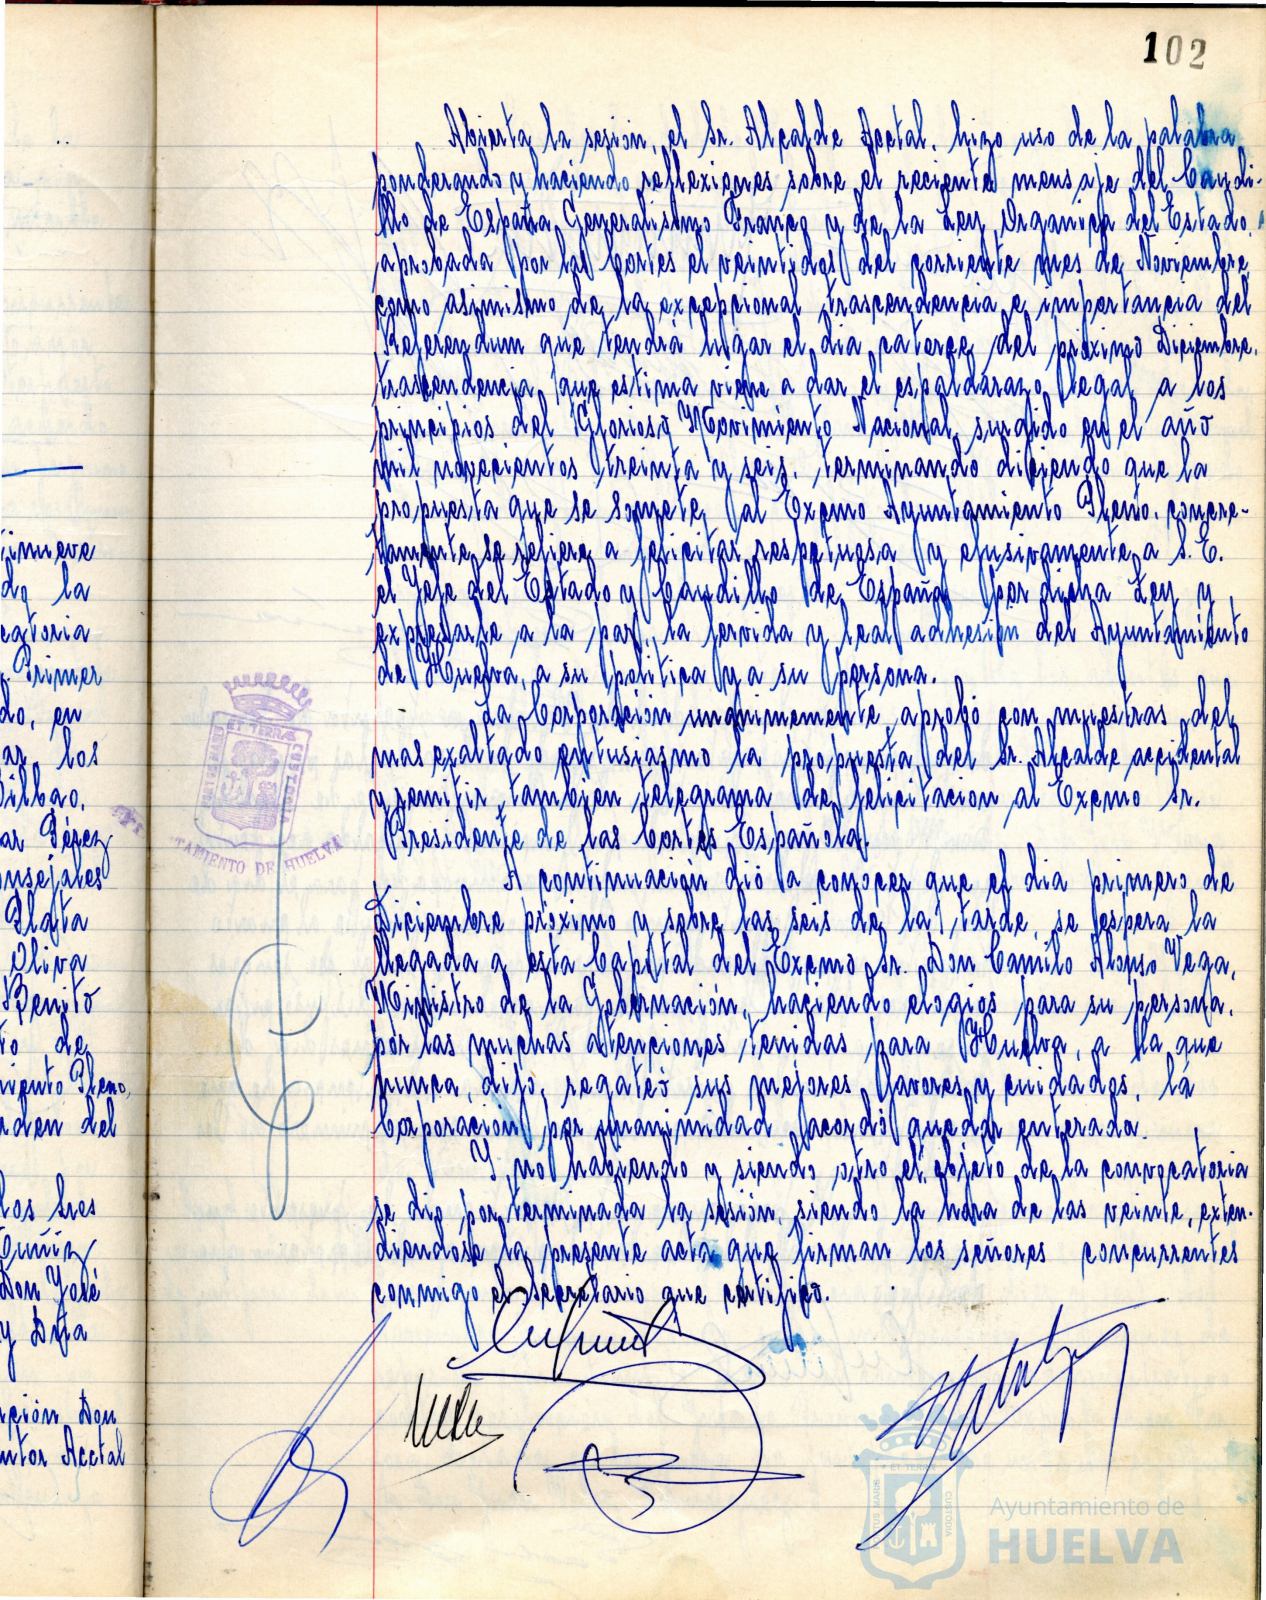 102
Abierta la sesión, el Sr. Alcalde Acctal. hizo uso de la palabra
ponderando y haciendo reflexiones sobre el reciente mensaje del Caudi-
llo de España Generalísimo Franco y de la Ley Orgánica del Estado,
aprobada por las Cortes el veintidos del corriente mes de Noviembre,
como asimismo de la excepcional trascendencia e importancia del
Referendum que tendrá lugar el dia catorce del próximo Diciembre,
trascendencia que estima viene a dar el espaldarazo legal a los
principios del Glorioso Movimiento Nacional, surgido en el año
mil novecientos treinta y seis, terminando diciendo que la
propuesta que se somete al Excmo Ayuntamiento Pleno, concre-
tamente se refiere a felicitar respetuosa y efusivamente a S.E.
el Jefe del Estado y Caudillo de España por dicha Ley y
expresarle a la par, la fervida y leal adhesión del Ayuntamiento
de Huelva, a su politica y a su persona.
La Corporación unanimemente aprobó con muestras del
mas exaltado entusiasmo la propuesta del Sr. Alcalde accidental
y remitir tambien telegrama de felicitacion al Excmo Sr.
Presidente de las Cortes Española.
A continuación dió a conocer que el dia primero de
Diciembre próximo y sobre las seis de la tarde, se espera la
llegada a esta Capital del Excmo Sr. Don Camilo Alonso Vega,
Ministro de la Gobernación, haciendo elogios para su persona,
por las muchas atenciones tenidas para Huelva, a la que
nunca, dijo, regateó sus mejores favores y cuidados, la
Corporacion por unanimidad acordó quedar enterada.
Y no habiendo y siendo otro el objeto de la convocatoria
se dio por terminada la sesión, siendo la hora de las veinte, exten-
diendose la presente acta que firman los señores concurrentes
conmigo el Secretario que certifico.
inueve
de la
catoria
Primer
do, en
ar los
Bilbao,
ar Pérez
onsejales
Plata
Oliva
Benito
to de
miento Pleno,
rden del
los sres
Muñiz
Don José
y Dta
pción Don
ntor Acctal
PORTUS MARIS ET TERRAE CUSTODIA
TAMIENTO DE HUELVA
Ayuntamiento de
HUELVA